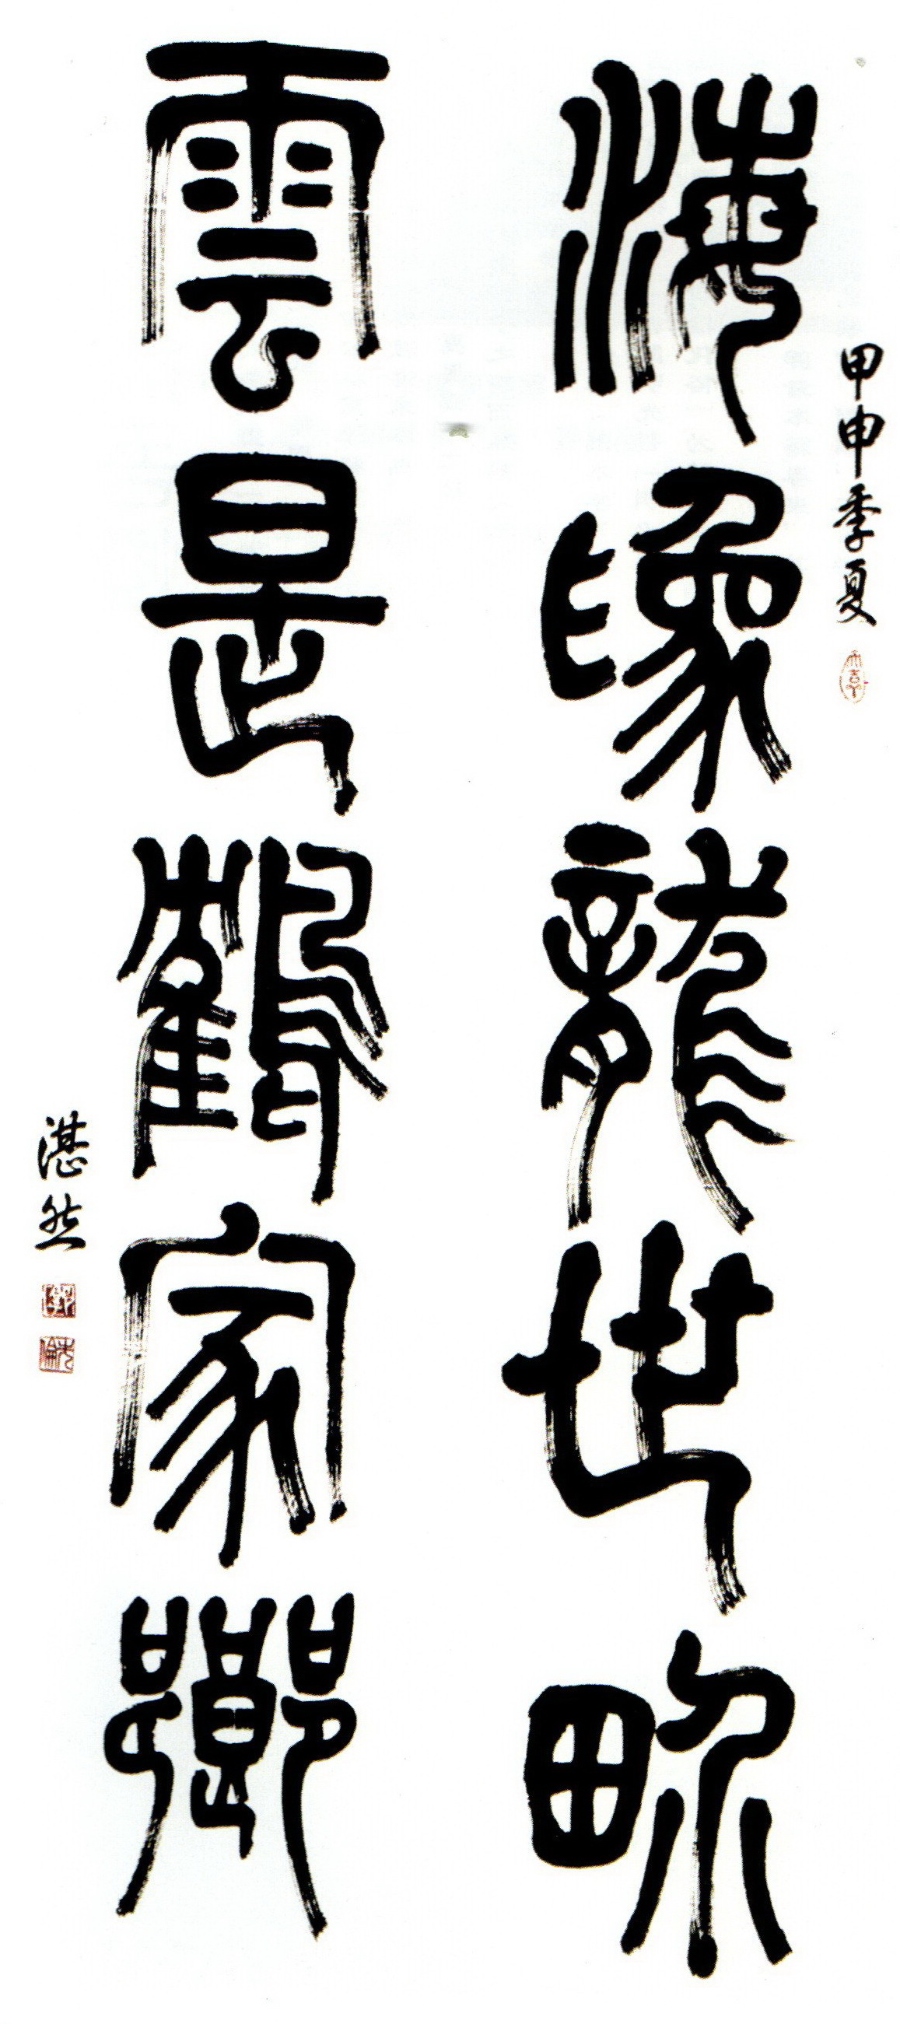 甲申季夏
海為龍世畍
雲是鶴家鄉
湛然